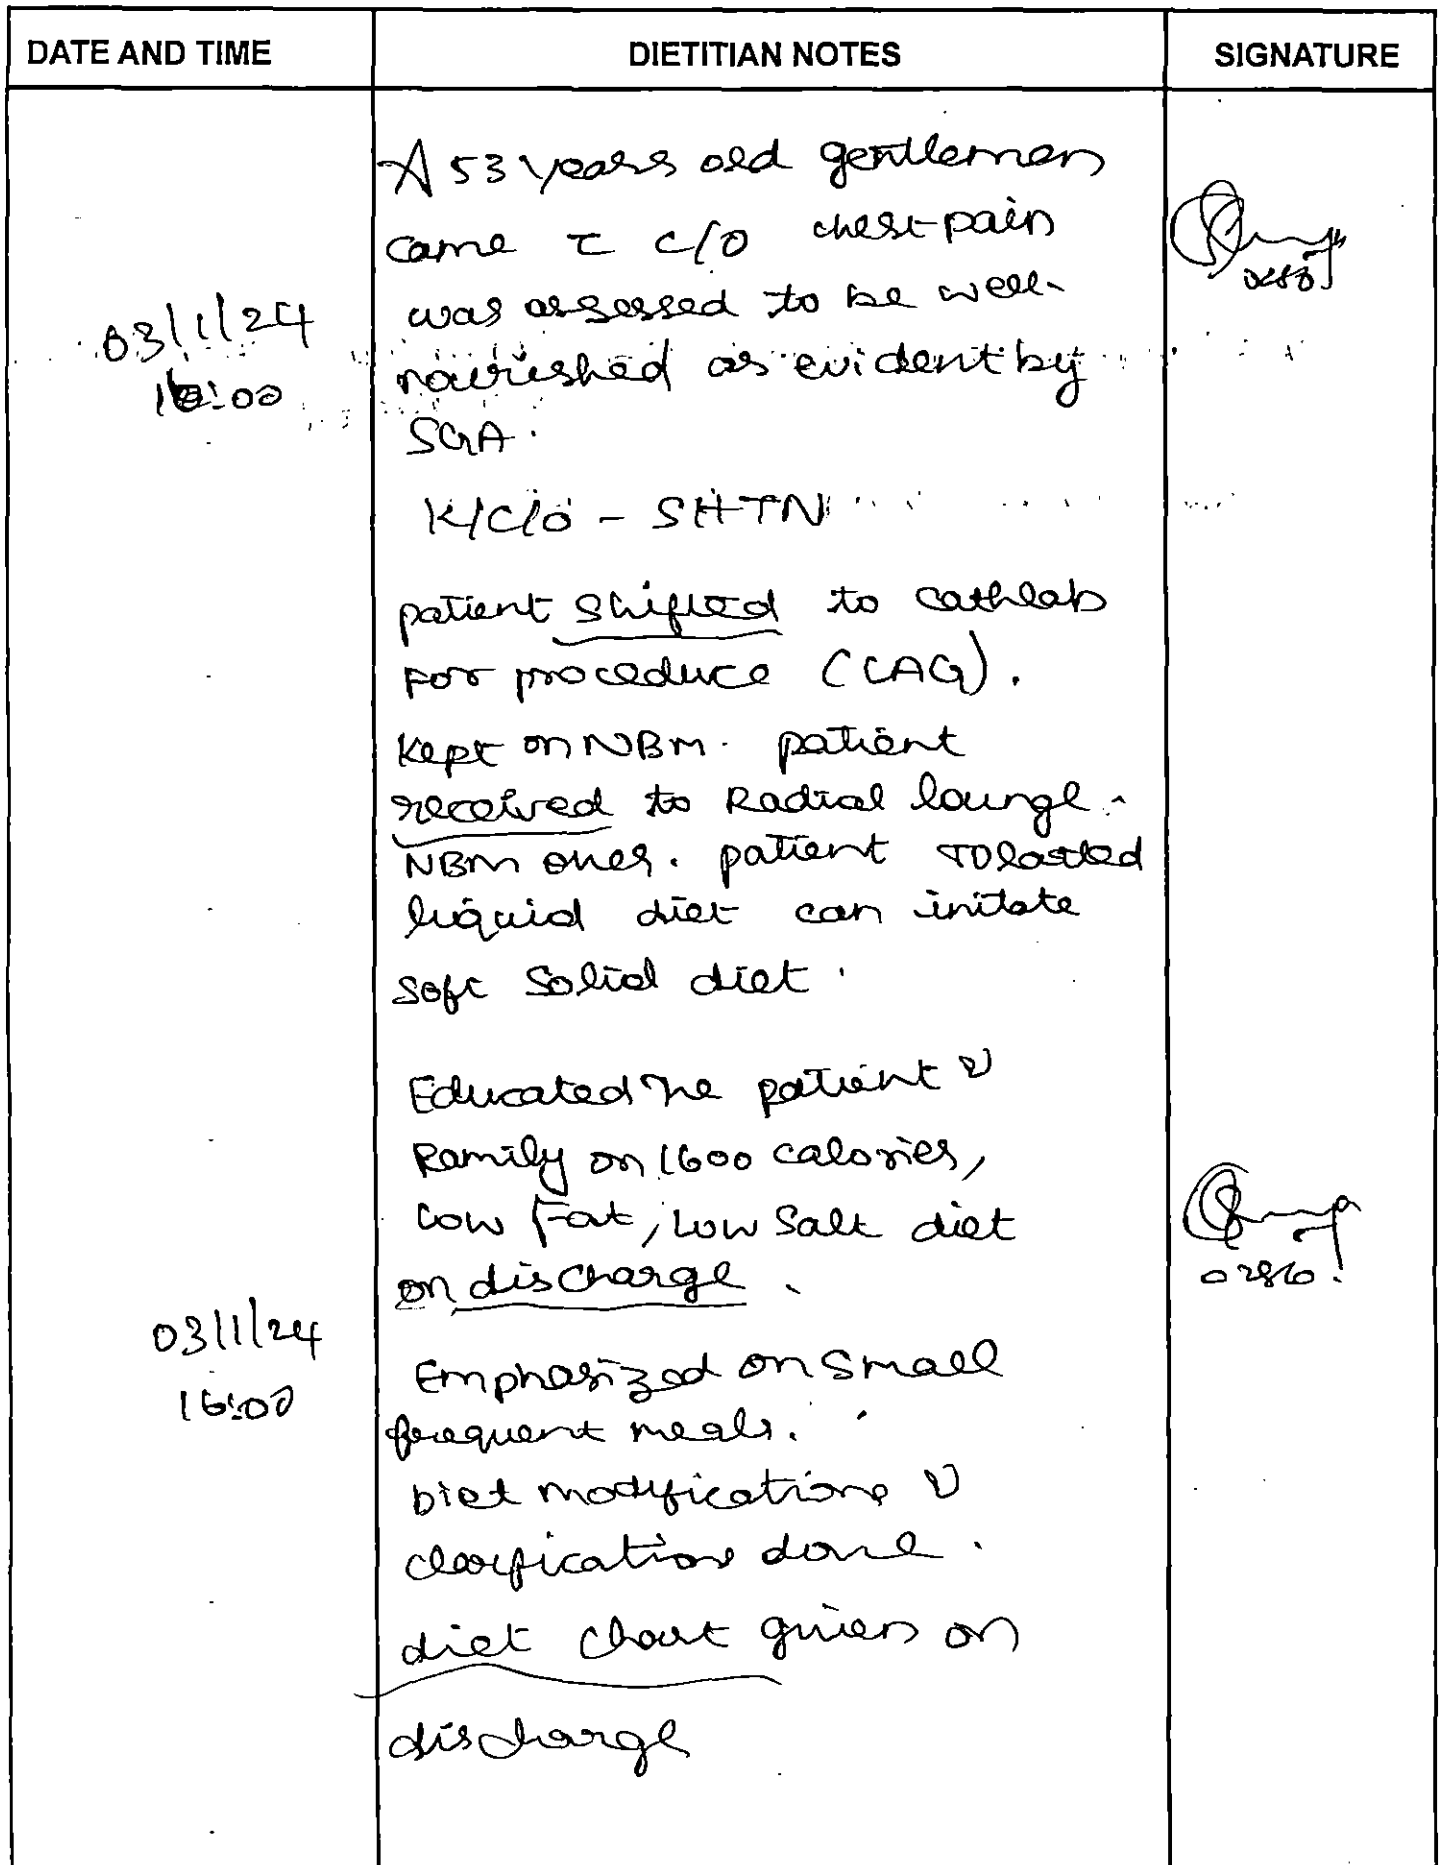 DATE AND TIME DIETITIAN NOTES SIGNATURE
A 53 years old gentleman
came c̄ c/o chest pain
was assessed to be well-
03/1/24 nourished as evident by
:00 SGA.
K/C/O - SHTN
patient shifted to cathlab
For procedure (CAG).
Kept on NBM. patient
received to Radial lounge.
NBM over. patient
liquid diet can initate
soft Solid diet.
Educated the patient &
Family on 1600 calories,
Low Fat, Low Salt diet
on discharge.
03/1/24
16:00 Emphasized on Small
frequent meals.
Diet modifications &
clarification done.
diet chart given on
discharge